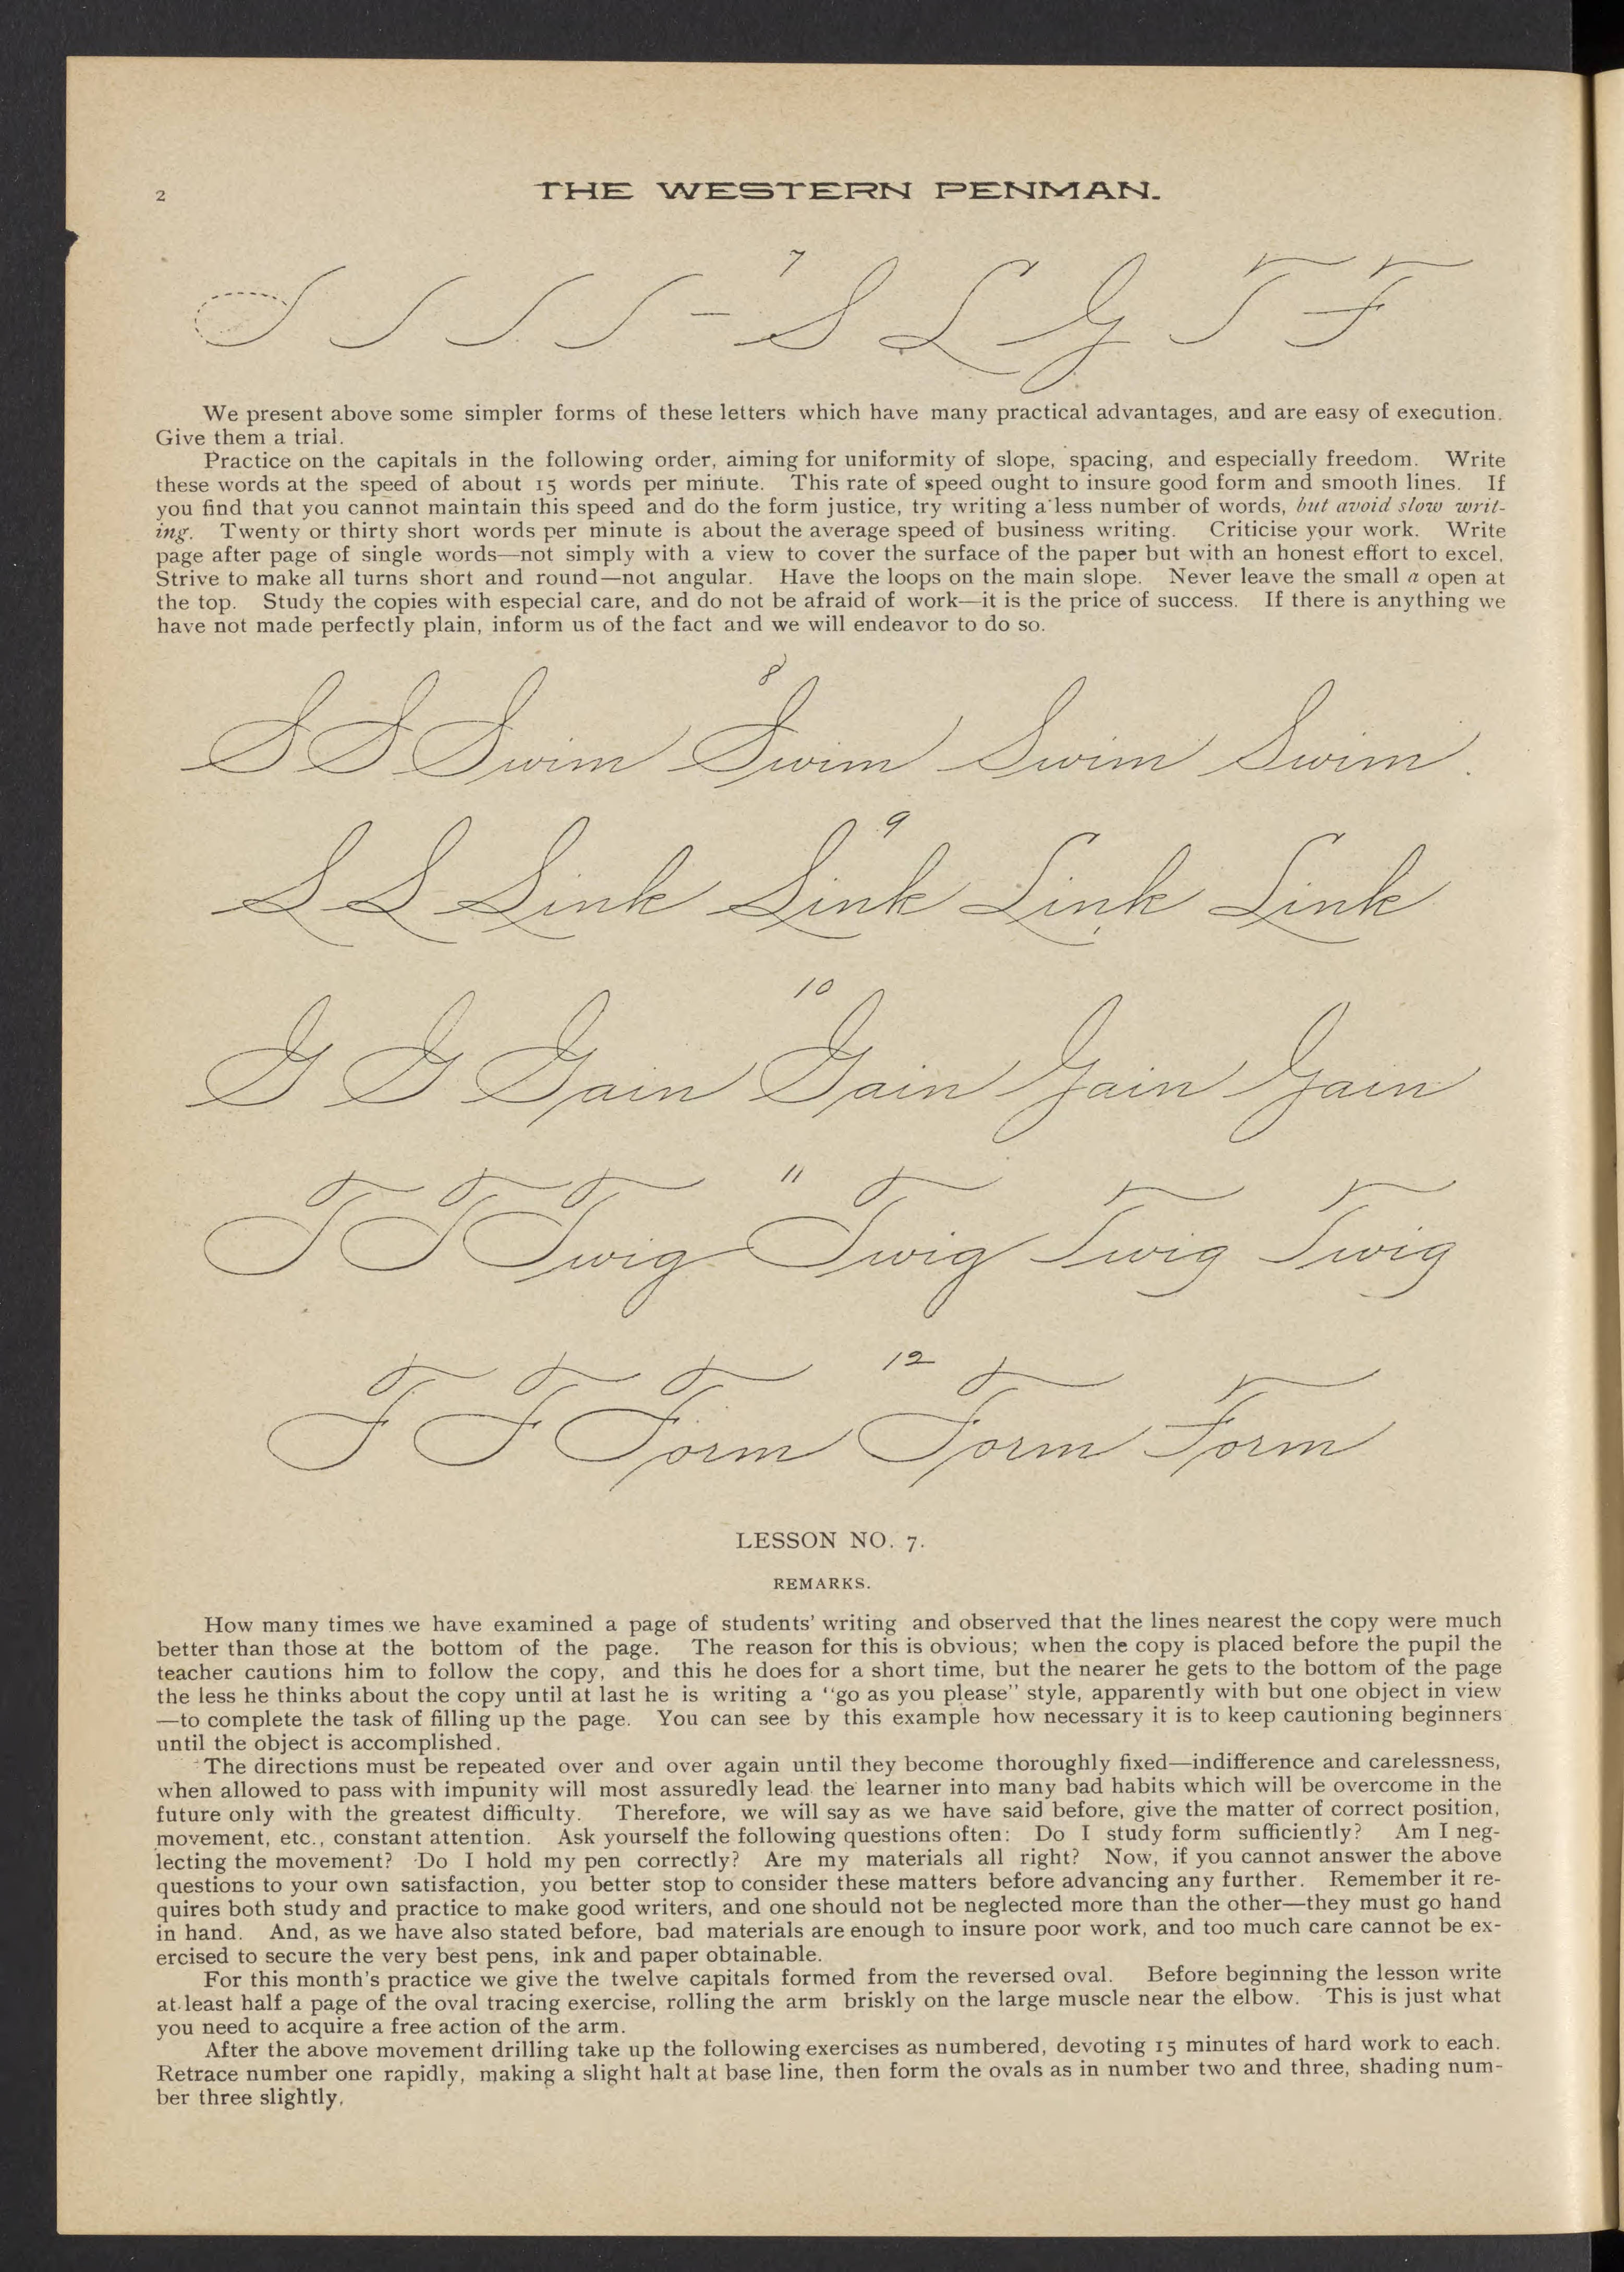 2
THE WESTERN PENMAN.
7
S L G T F
We present above some simpler forms of these letters which have many practical advantages, and are easy of execution.
Give them a trial.
Practice on the capitals in the following order, aiming for uniformity of slope, spacing, and especially freedom. Write
these words at the speed of about 15 words per minute. This rate of speed ought to insure good form and smooth lines. If
you find that you cannot maintain this speed and do the form justice, try writing a less number of words, but avoid slow writ-
ing. Twenty or thirty short words per minute is about the average speed of business writing. Criticise your work. Write
page after page of single words—not simply with a view to cover the surface of the paper but with an honest effort to excel.
Strive to make all turns short and round—not angular. Have the loops on the main slope. Never leave the small a open at
the top. Study the copies with especial care, and do not be afraid of work—it is the price of success. If there is anything we
have not made perfectly plain, inform us of the fact and we will endeavor to do so.
8
S S Swim Swim Swim Swim
9
L L Link Link Link Link
10
G G Gain Gain Gain Gain
11
T T Twig Twig Twig Twig
12
F F Form Form Form
LESSON NO. 7.
REMARKS.
How many times we have examined a page of students' writing and observed that the lines nearest the copy were much
better than those at the bottom of the page. The reason for this is obvious; when the copy is placed before the pupil the
teacher cautions him to follow the copy, and this he does for a short time, but the nearer he gets to the bottom of the page
the less he thinks about the copy until at last he is writing a "go as you please" style, apparently with but one object in view
—to complete the task of filling up the page. You can see by this example how necessary it is to keep cautioning beginners
until the object is accomplished.
The directions must be repeated over and over again until they become thoroughly fixed—indifference and carelessness,
when allowed to pass with impunity will most assuredly lead the learner into many bad habits which will be overcome in the
future only with the greatest difficulty. Therefore, we will say as we have said before, give the matter of correct position,
movement, etc., constant attention. Ask yourself the following questions often: Do I study form sufficiently? Am I neg-
lecting the movement? Do I hold my pen correctly? Are my materials all right? Now, if you cannot answer the above
questions to your own satisfaction, you better stop to consider these matters before advancing any further. Remember it re-
quires both study and practice to make good writers, and one should not be neglected more than the other—they must go hand
in hand. And, as we have also stated before, bad materials are enough to insure poor work, and too much care cannot be ex-
ercised to secure the very best pens, ink and paper obtainable.
For this month's practice we give the twelve capitals formed from the reversed oval. Before beginning the lesson write
at least half a page of the oval tracing exercise, rolling the arm briskly on the large muscle near the elbow. This is just what
you need to acquire a free action of the arm.
After the above movement drilling take up the following exercises as numbered, devoting 15 minutes of hard work to each.
Retrace number one rapidly, making a slight halt at base line, then form the ovals as in number two and three, shading num-
ber three slightly.